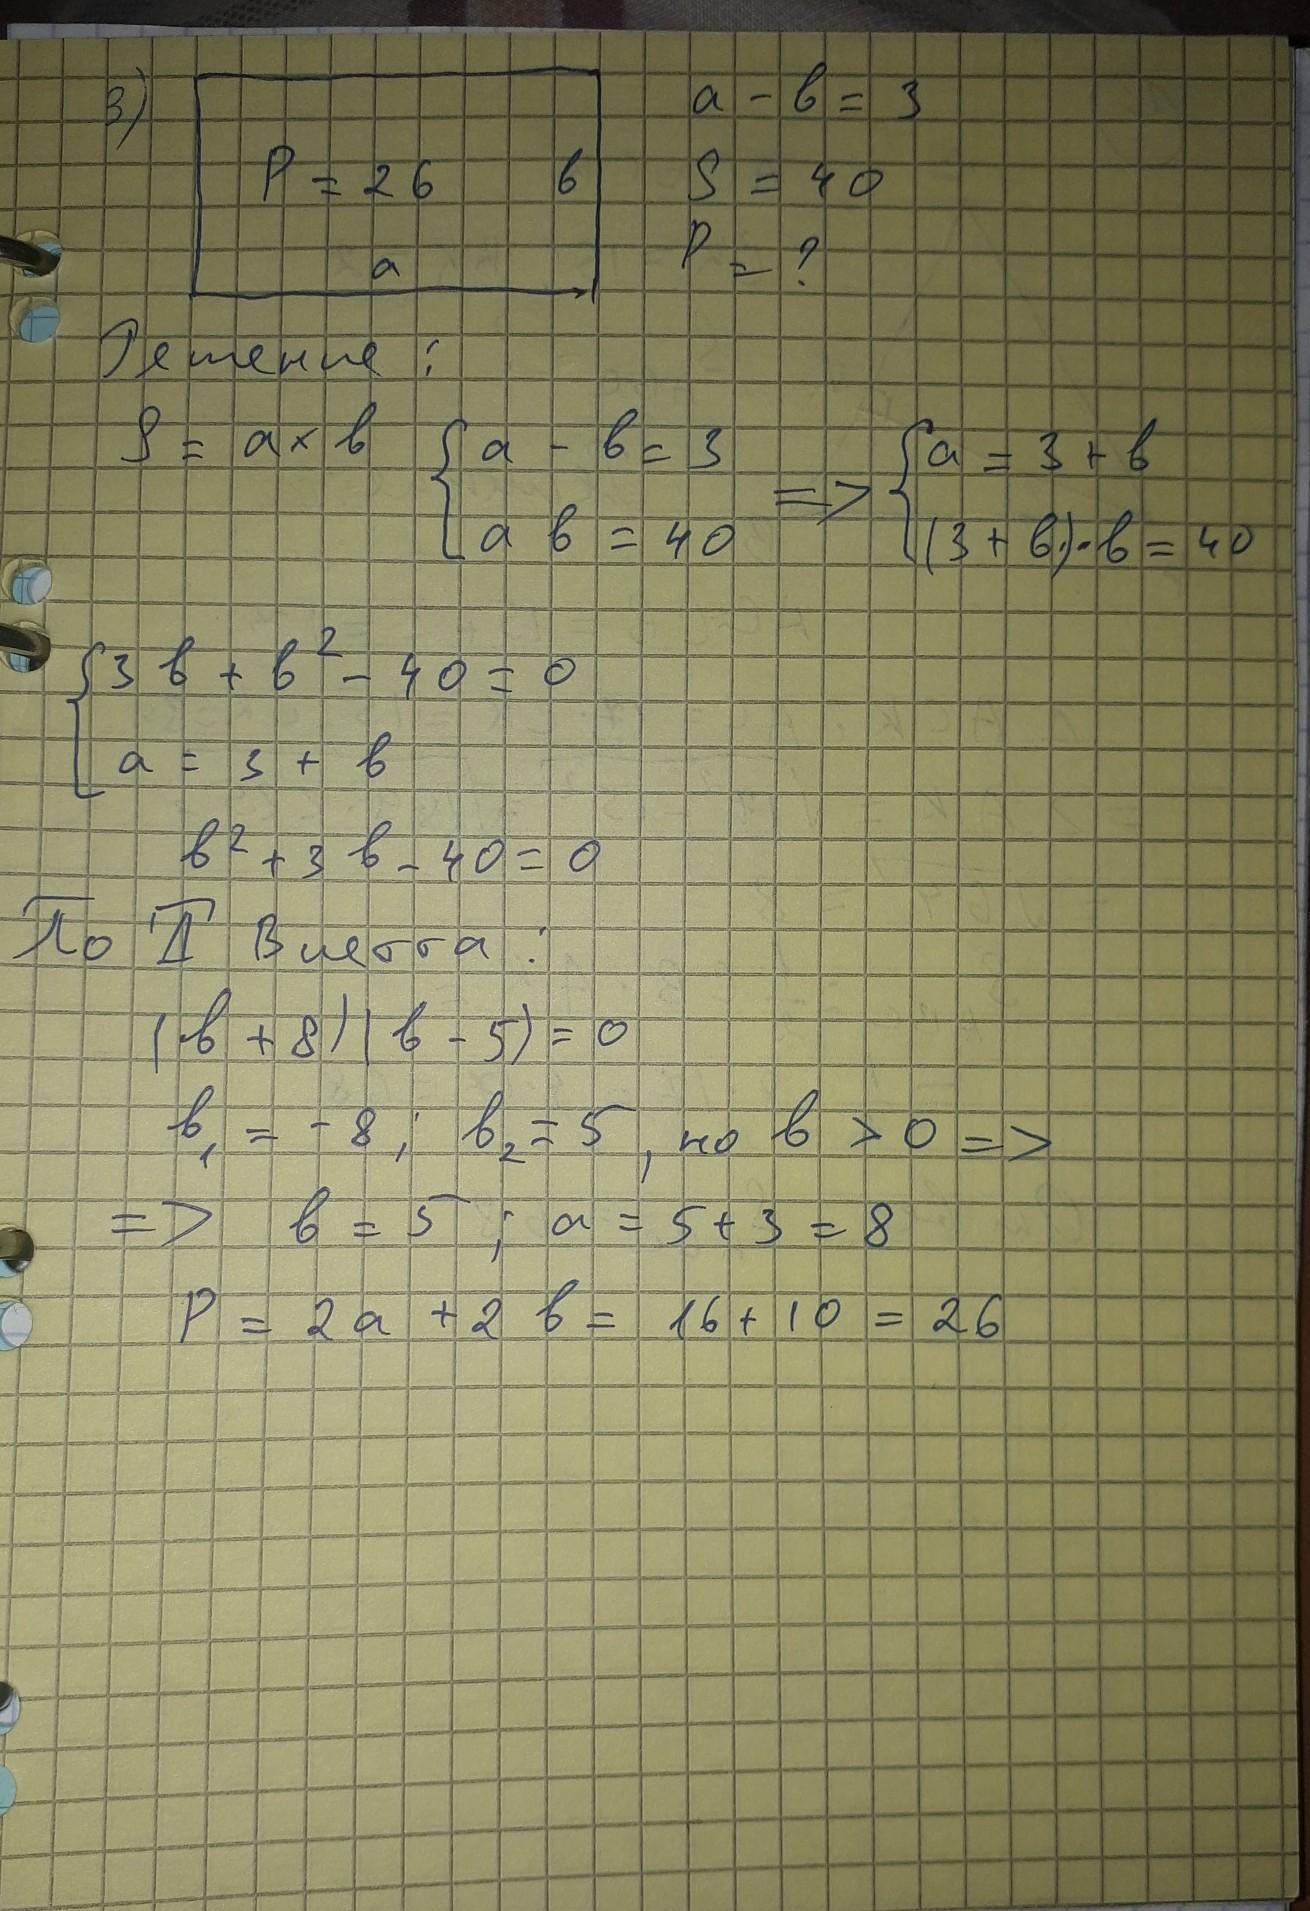 3)
P = 26
в
a
a - в = 3
S = 40
P = ?
Решение:
S = a × в { a - в = 3 => { a = 3 + в
a в = 40 (3 + в) · в = 40
{ 3 в + в² - 40 = 0
a = 3 + в
в² + 3 в - 40 = 0
По Т Виетта:
(в + 8)(в - 5) = 0
в₁ = - 8; в₂ = 5, но в > 0 =>
=> в = 5; a = 5 + 3 = 8
P = 2a + 2 в = 16 + 10 = 26